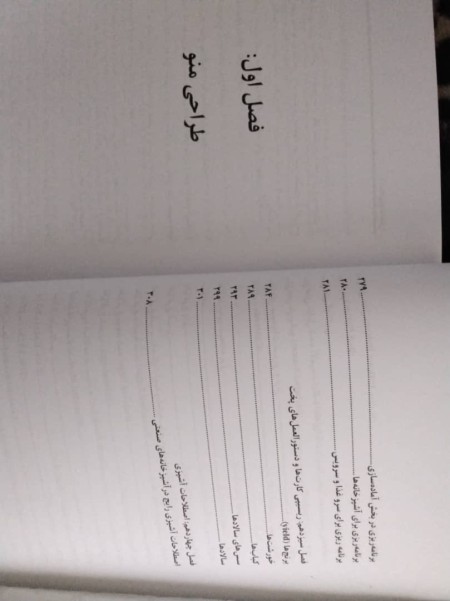 برنامه‌ریزی در بخش آماده‌سازی ۲۷۹
برنامه‌ریزی برای آشپزخانه‌ها ۲۸۰
برنامه ریزی برای سرو غذا و سرویس ۲۸۱
فصل سیزدهم: رسیپی کارت‌ها و دستورالعمل‌های پخت
برنج‌ها (yield) ۲۸۴
خورشت‌ها ۲۸۹
کباب‌ها ۲۹۳
سس‌های سالادها ۲۹۹
سالادها ۳۰۱
فصل چهاردهم: اصطلاحات آشپزی
اصطلاحات آشپزی رایج در آشپزخانه‌های صنعتی ۳۰۸
فصل اول:
طراحی منو